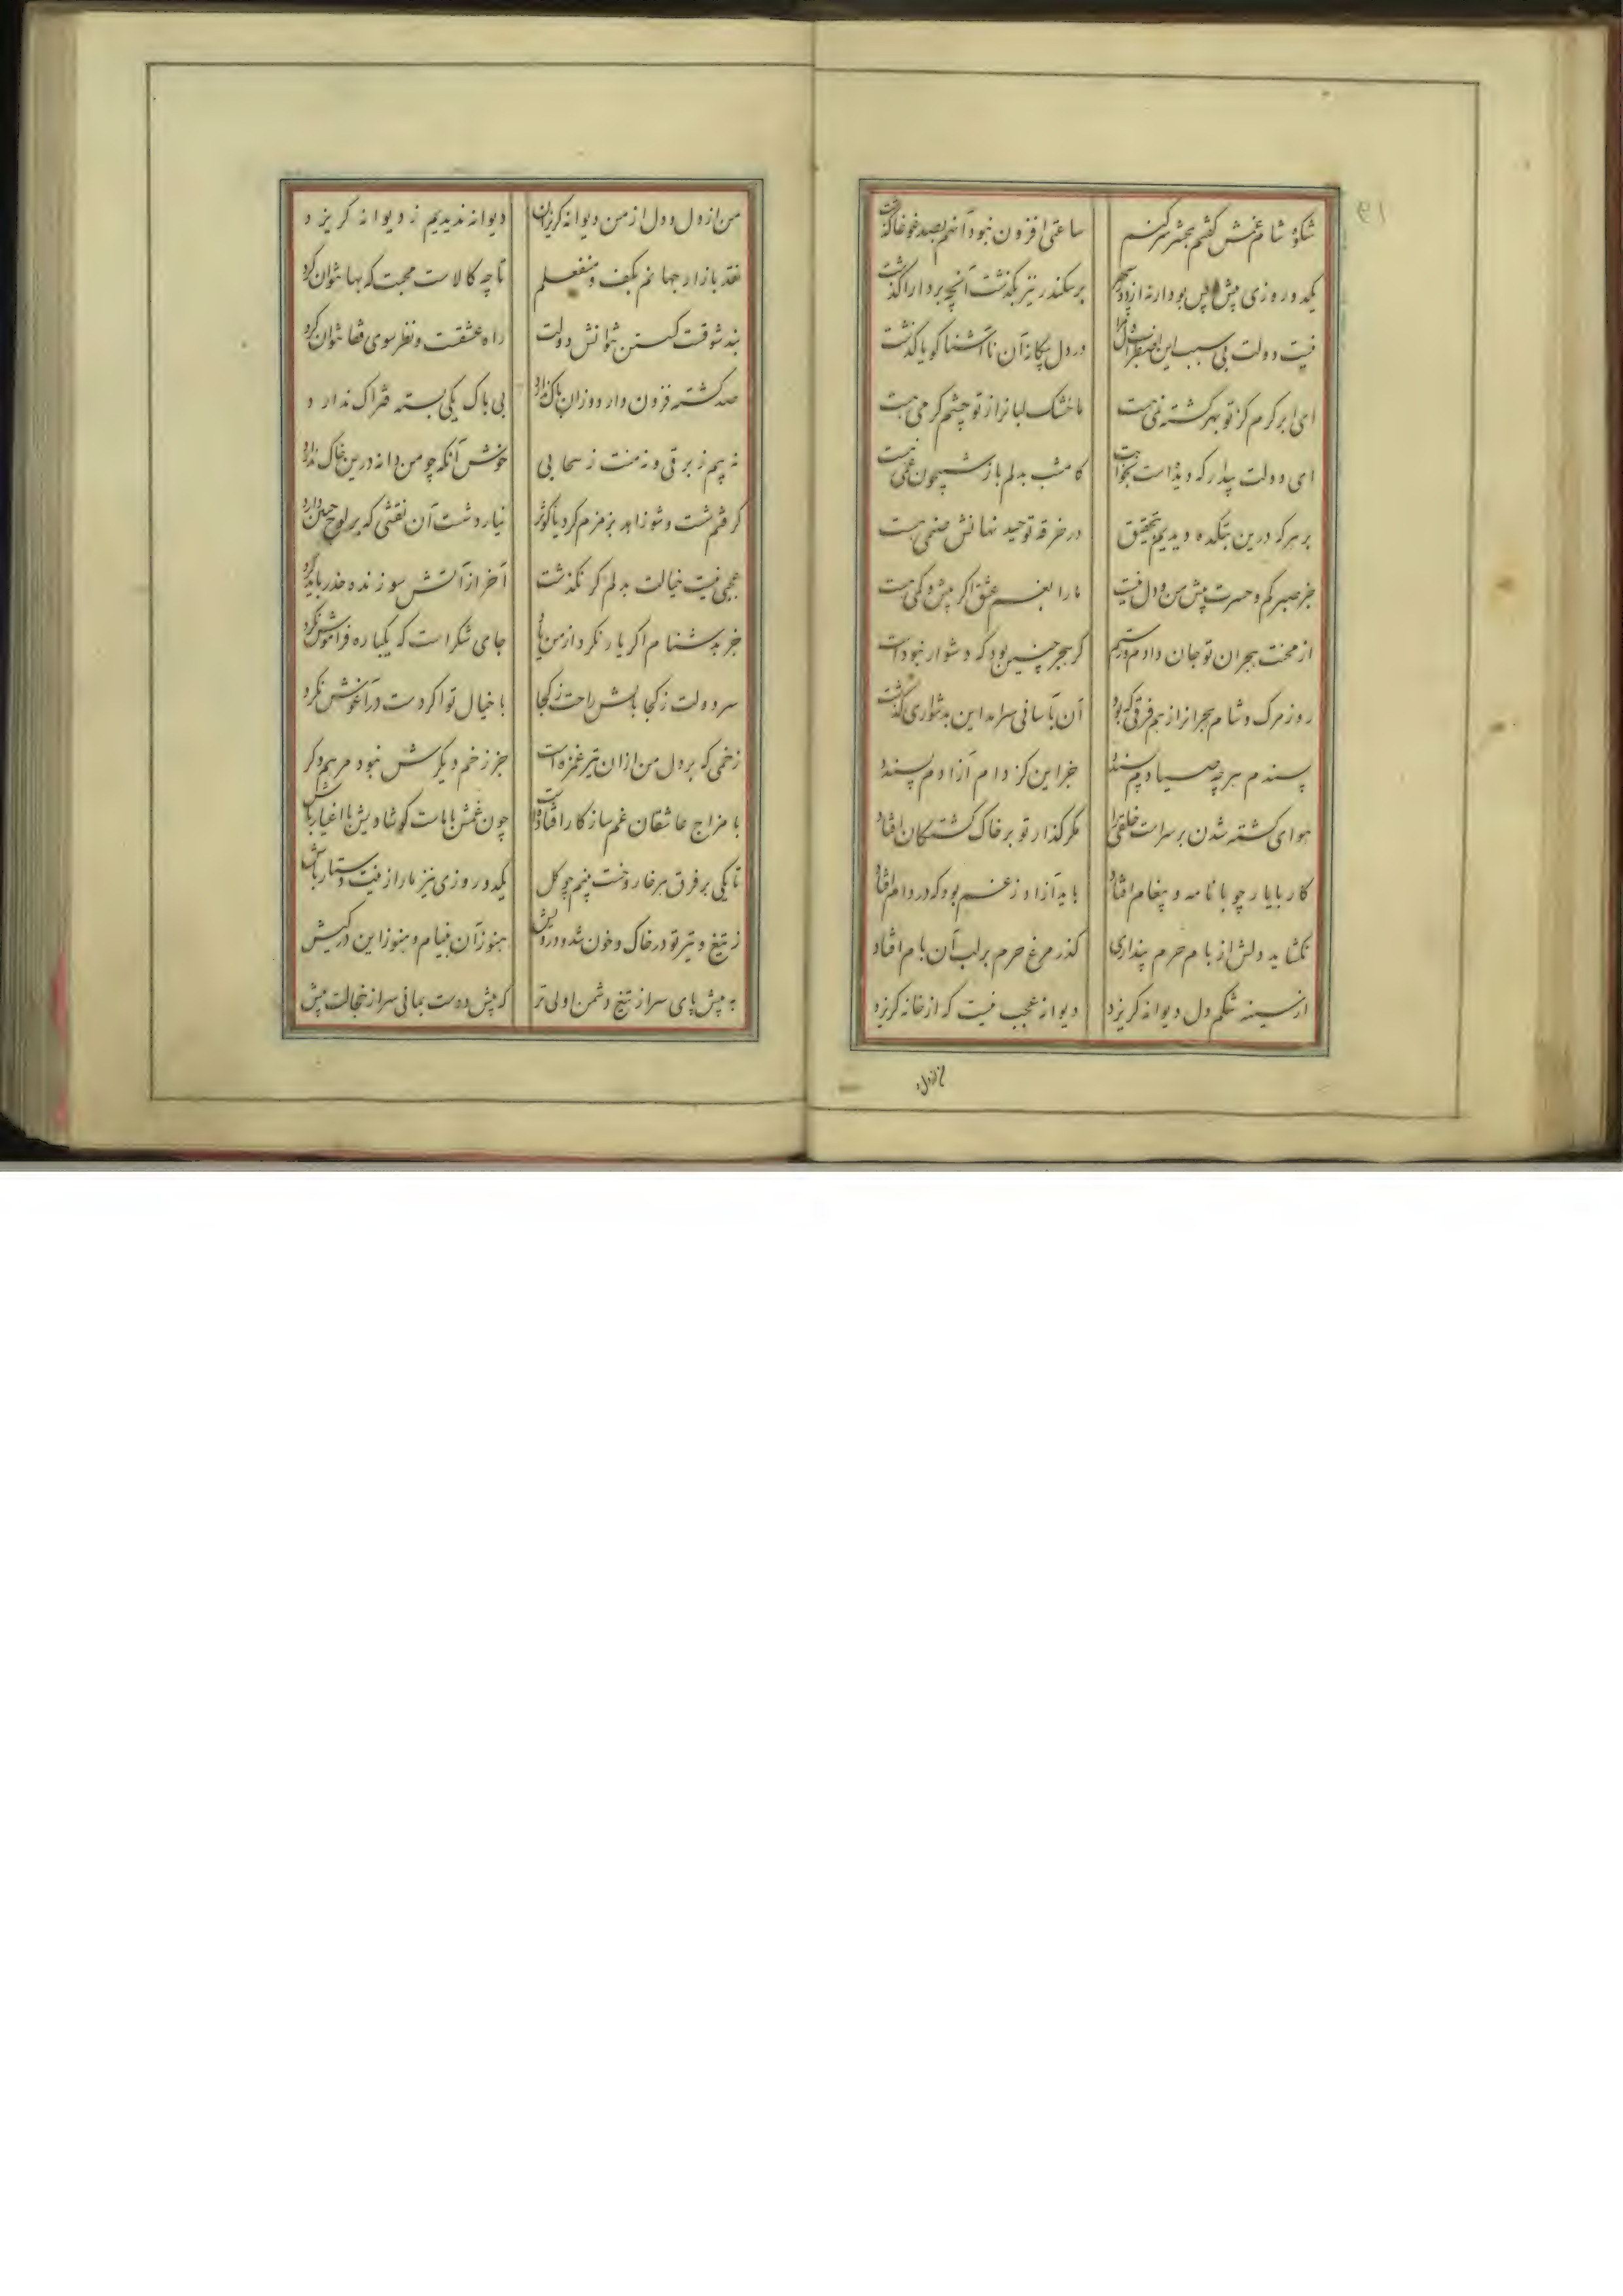 ۱۹
شکوهٔ شام غمش گفتم بمحشر سر کنم ساعتی افزون نبود آنهم بصد غوغا گذشت
یکدو روزی پیش و پس بود ارنه از دور سپهر بر سکندر نیز بگذشت آنچه بر دارا گذشت
نیست دولت بی سبب این اضطراب دل ترا در دل بیگانه آن ناآشنا گویا گذشت
ای ابر کرم کز تو بهر گشته نمی هست ما خشک لبانرا ز تو چشم کرمی هست
ای دولت بیدار که دیده است بخوابت کامشب بدلم باز شبیخون غمی هست
بر هر که درین بتکده دیدیم بتحقیق در خرقه توحید نهانش صنمی هست
جز صبر کم و حسرت بیش من و دل نیست ما را بغم عشق اگر بیش و کمی هست
از محنت هجران تو جان دادم و رستم گر هجر چنین بود که دشوار نبوداست
روز مرگ و شام هجرانرا ز هم فرقی که بود آن بآسانی سرامد این بدشواری گذشت
پسندم هر چه صیادم پسندد جز این کز دام آزادم پسندد
هوای کشته شدن بر سراست خلقی را مگر گذار تو بر خاک کشتگان افتاد
کار با یار چو با نامه و پیغام افتاد باید آزاد ز غم بود که در دام افتاد
نگشاید دلش از بام حرم پنداری گذر مرغ حرم بر لب آن بام افتاد
از سینه تنگم دل دیوانه گریزد دیوانه عجب نیست که از خانه گریزد
من از دل
من از دل و دل از من دیوانه گریزان دیوانه ندیدیم ز دیوانه گریزد
نقد بازار جهانم بکف و منفعلم تا چه کالاست محبت که بها نتوان کرد
بند شوقت گسستن نتوانش دولت راه عشقت و نظر سوی قفا نتوان کرد
صد کشته فزون دارد و زان باک ندارد بی باک یکی بسته فتراک ندارد
نه بیم ز برقی و نه منت ز سحابی خوش آنکه چو من دانه درین خاک ندارد
گرفتم شست و شو زاهد بزمزم کرد یا کوثر نیارد شست آن نقشی که بر لوح جبین دارد
عجبی نیست خیالت بدلم گر نگذشت آخر از آتش سوزنده حذر باید کرد
جز بدشنام اگر یار نکرد از من یاد جای شکر است که یکباره فراموش نکرد
سر دولت ز کجا بالش راحت ز کجا با خیال تو اگر دست در آغوش نکرد
زخمی که بر دل من ازان تیر غمزه است جز زخم دیگرش نبود مرهم دگر
با مزاج عاشقان غم سازگار افتاده است چون غمش با ماست گو شادیش با اغیار باش
تا یکی بر فرق هر خار و خست بینم چو گل یکدو روزی نیز ما را زینت دستار باش
ز تیغ و تیر تو در خاک و خون شد و درویش هنوز آن بنیام و هنوز این در کیش
به پیش پای سر از تیغ دشمن اولی تر که پیش دوست بمانی سر از خجالت پیش